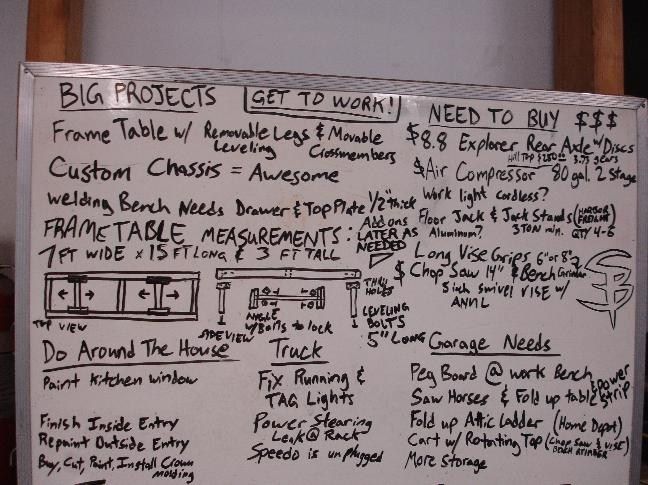 BIG PROJECTS
GET TO WORK!
Frame Table w/ Removable Legs & Movable
Leveling Crossmembers
Custom Chassis = Awesome
Welding Bench Needs Drawer & Top Plate 1/2" thick
FRAMETABLE MEASUREMENTS:
Add ons
LATER AS
NEEDED
7FT WIDE x 15 FT LONG & 3 FT TALL
TOP VIEW
SIDE VIEW
ANGLE
w/Bolts to lock
THRU
HOLES
LEVELING
BOLTS
5" LONG
NEED TO BUY $$$
$8.8 Explorer Rear Axle w/Discs
Hill Top $250.00 3.73 gears
$Air Compressor 80 gal. 2 Stage
Work light cordless?
Floor Jack & Jack Stands (HARBOR
FREIGHT)
Aluminum? 3 TON min. QTY 4-6
Long Vise Grips 6" or 8"?
$ Chop Saw 14" & Bench Grinder
5 inch swivel VISE w/
ANVIL
Do Around The House
Paint Kitchen window
Finish Inside Entry
Repaint Outside Entry
Buy, Cut, Paint, Install Crown
molding
Truck
Fix Running &
TAG Lights
Power Stearing
Leak @ Rack
Speedo is unplugged
Garage Needs
Peg Board @ work Bench
& power
strip
Saw Horses & Fold up table
Fold up Attic Ladder (Home Depot)
Cart w/ Rotating Top (Chop Saw & VISE)
BENCH GRINDER
More Storage